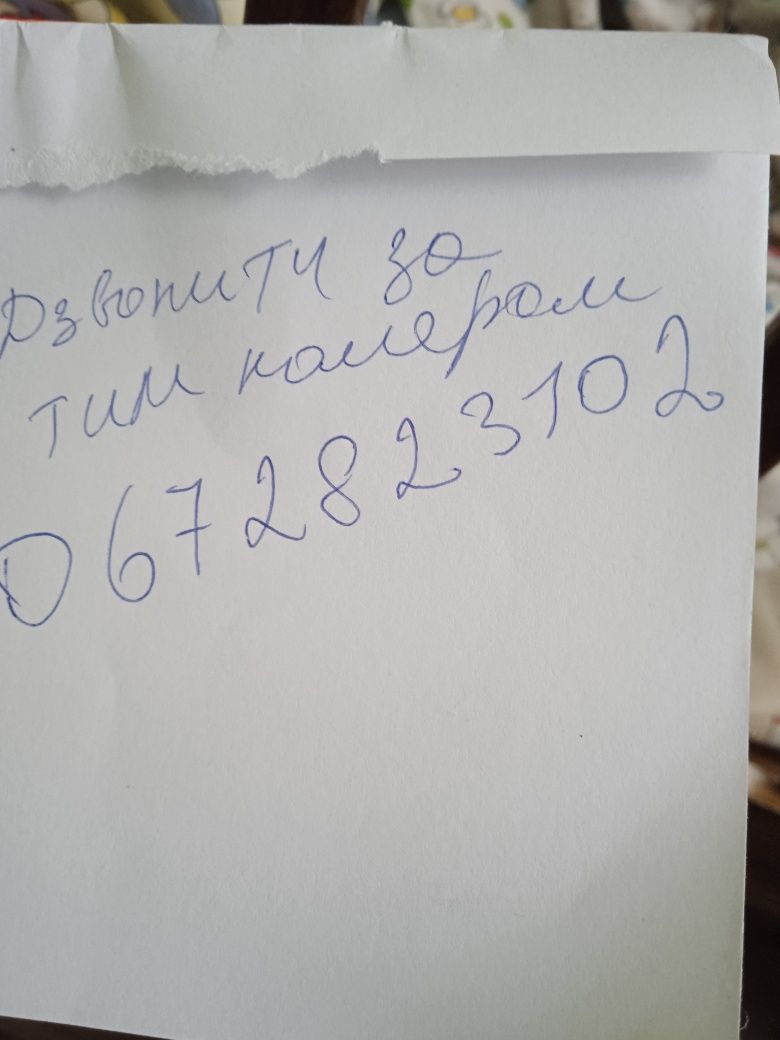 Дзвонити за
тим номером
0672823102